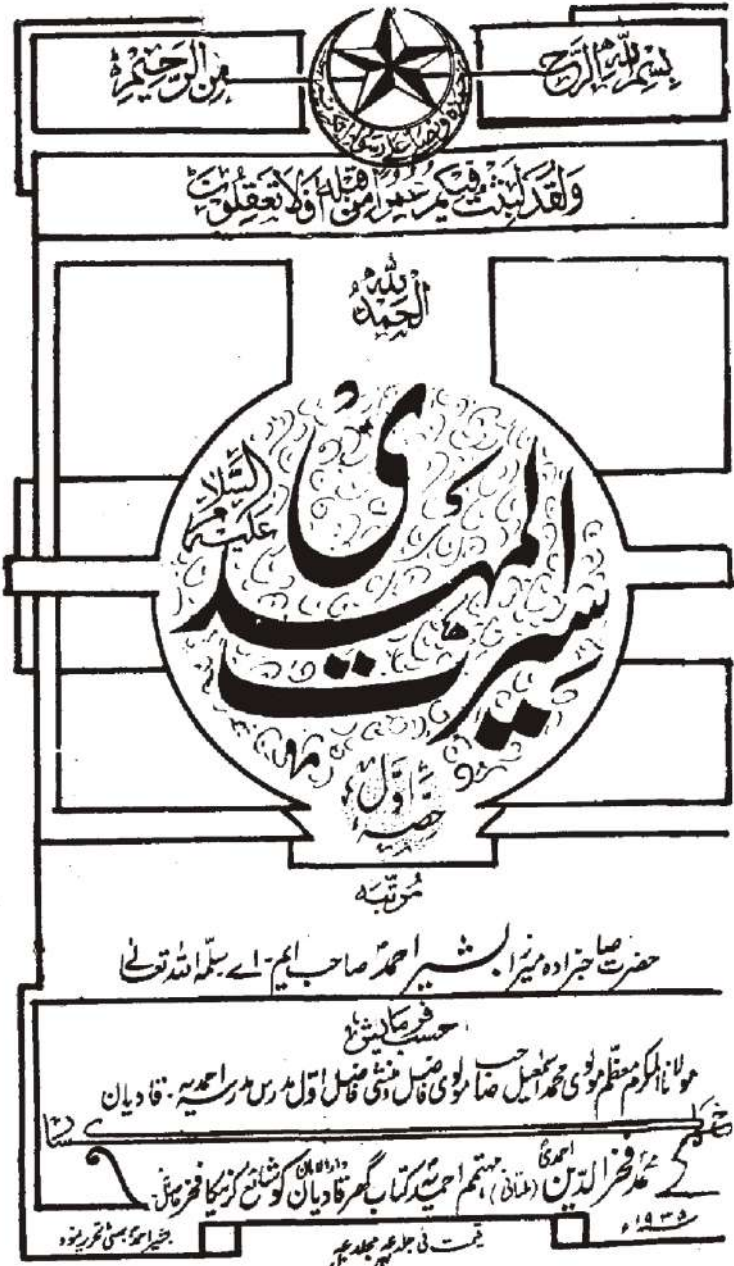 بِسْمِ اللّٰهِ الرَّحْمٰنِ الرَّحِيْمِ
وَلَقَدْ لَبِثْتُ فِيْكُمْ عُمُرًا مِّنْ قَبْلِهٖ اَفَلَا تَعْقِلُوْنَ
الحمد للہ
سیرت المہدی
علیہ السلام
حصہ اوّل
مُرتّبہ
حضرت صاحبزادہ میرزا بشیر احمد صاحب ایم - اے سلّمہ اللہ تعالیٰ
حسب فرمایش
مولانا المکرم معظم مولوی محمد اسمٰعیل صاحب مولوی فاضل و منشی فاضل اوّل مدرس مدرسہ احمدیہ - قادیان
محمد فخر الدین احمدی (ملتانی) مہتمم احمدیہ کتاب گھر قادیان دارالامان کو شائع کرنیکا فخر حاصل
۱۹۳۵ء
قیمت فی جلد مجلد